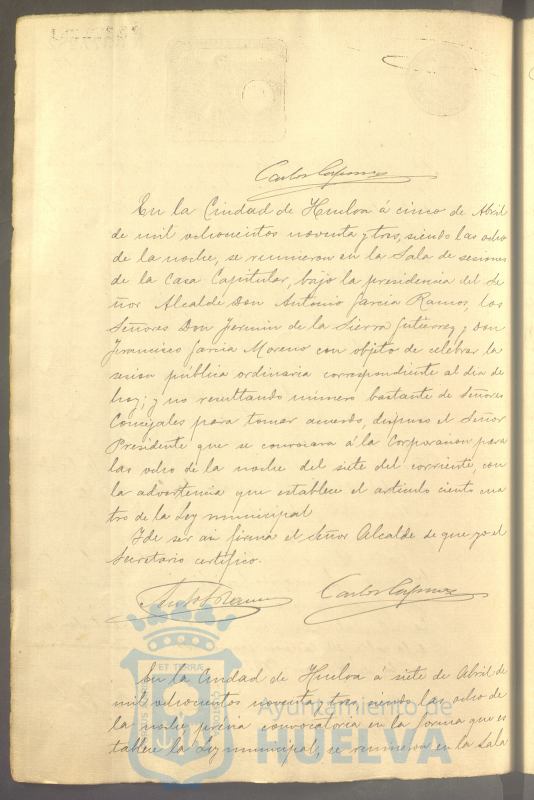 Carlos
En la Ciudad de Huelva á cinco de Abril
de mil ochocientos noventa y tres, siendo las ocho
de la noche, se reunieron en la Sala de sesiones
de la Casa Capitular, bajo la presidencia del Se
ñor Alcalde Don Antonio Garcia Ramos, los
Señores Don Fermin de la Sierra Gutierrez y Don
Francisco Garcia Moreno con objeto de celebrar la
sesion pública ordinaria correspondiente al dia de
hoy; y no resultando número bastante de Señores
Concejales para tomar acuerdo, dispuso el Señor
Presidente que se convocara á la Corporacion para
las ocho de la noche del siete del corriente, con
la advertencia que establece el articulo ciento cua
tro de la Ley municipal
Y de ser asi firma el Señor Alcalde de que yo el
Secretario certifico.
Carlos
En la Ciudad de Huelva á siete de Abril de
mil ochocientos noventa y tres, siendo las ocho de
la noche previa convocatoria en la forma que es
tablece la Ley municipal, se reunieron en la Sala
ET TERRÆ
Ayuntamiento de
HUELVA